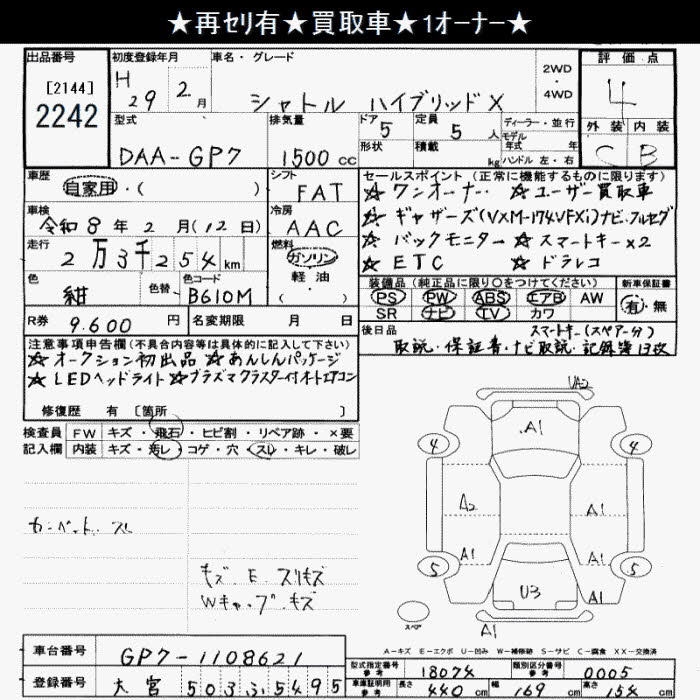 ★再セリ有★買取車★1オーナー★
出品番号
[2144]
2242
初度登録年月
H 29 2月
車名・グレード
シャトル ハイブリッドX
2WD・4WD
評価点
4
外装 内装
C B
型式
DAA-GP7
排気量
1500cc
ドア 5
形状
定員 5人
積載 kg
ディーラー・並行
モデル年式 年式
ハンドル 左・右
車歴
自家用・( )
シフト
FAT
車検
令和8年2月(12日)
冷房
AAC
走行
2万3千254km
燃料
ガソリン
軽油
( )
色
紺
色替
色コード
B610M
R券 9.600円
名変期限 月 日
セールスポイント(正常に機能するものに限ります)
☆ワンオーナー ☆ユーザー買取車
☆ギャザーズ(VXM-174VFXi)ナビ・フルセグ
☆バックモニター ☆スマートキー×2
☆ETC ☆ドラレコ
装備品(純正品に限り○をつけてください)
PS PW ABS エアB AW
SR ナビ TV カワ
新車保証書
有・無
後日品 スマートキー(スペアー分)
取説・保証書・ナビ取説・記録簿13枚
注意事項申告欄(不具合内容等は具体的に記入して下さい)
☆オークション初出品 ☆あんしんパッケージ
☆LEDヘッドライト ☆プラズマクラスター付オートエアコン
修復歴 有 [箇所 ]
検査員記入欄
FW キズ・飛石・ヒビ割・リペア跡・×要
内装 キズ・汚レ・コゲ・穴・スレ・キレ・破レ
カーペット スレ
キズ.E.スリキズ
Wキャップキズ
UA2
A1
4 4
A2 A1
A1 A1
5 5
U3
A1
スペア
A-キズ E-エクボ U-凹み W-補修跡 S-サビ C-腐食 XX-交換済
車台番号 GP7-1108621
登録番号 大宮503ふ5495
型式指定番号 参考 18074
類別区分番号 参考 0005
車庫証明用 参考 長さ 440cm 幅 169cm 高さ 154cm